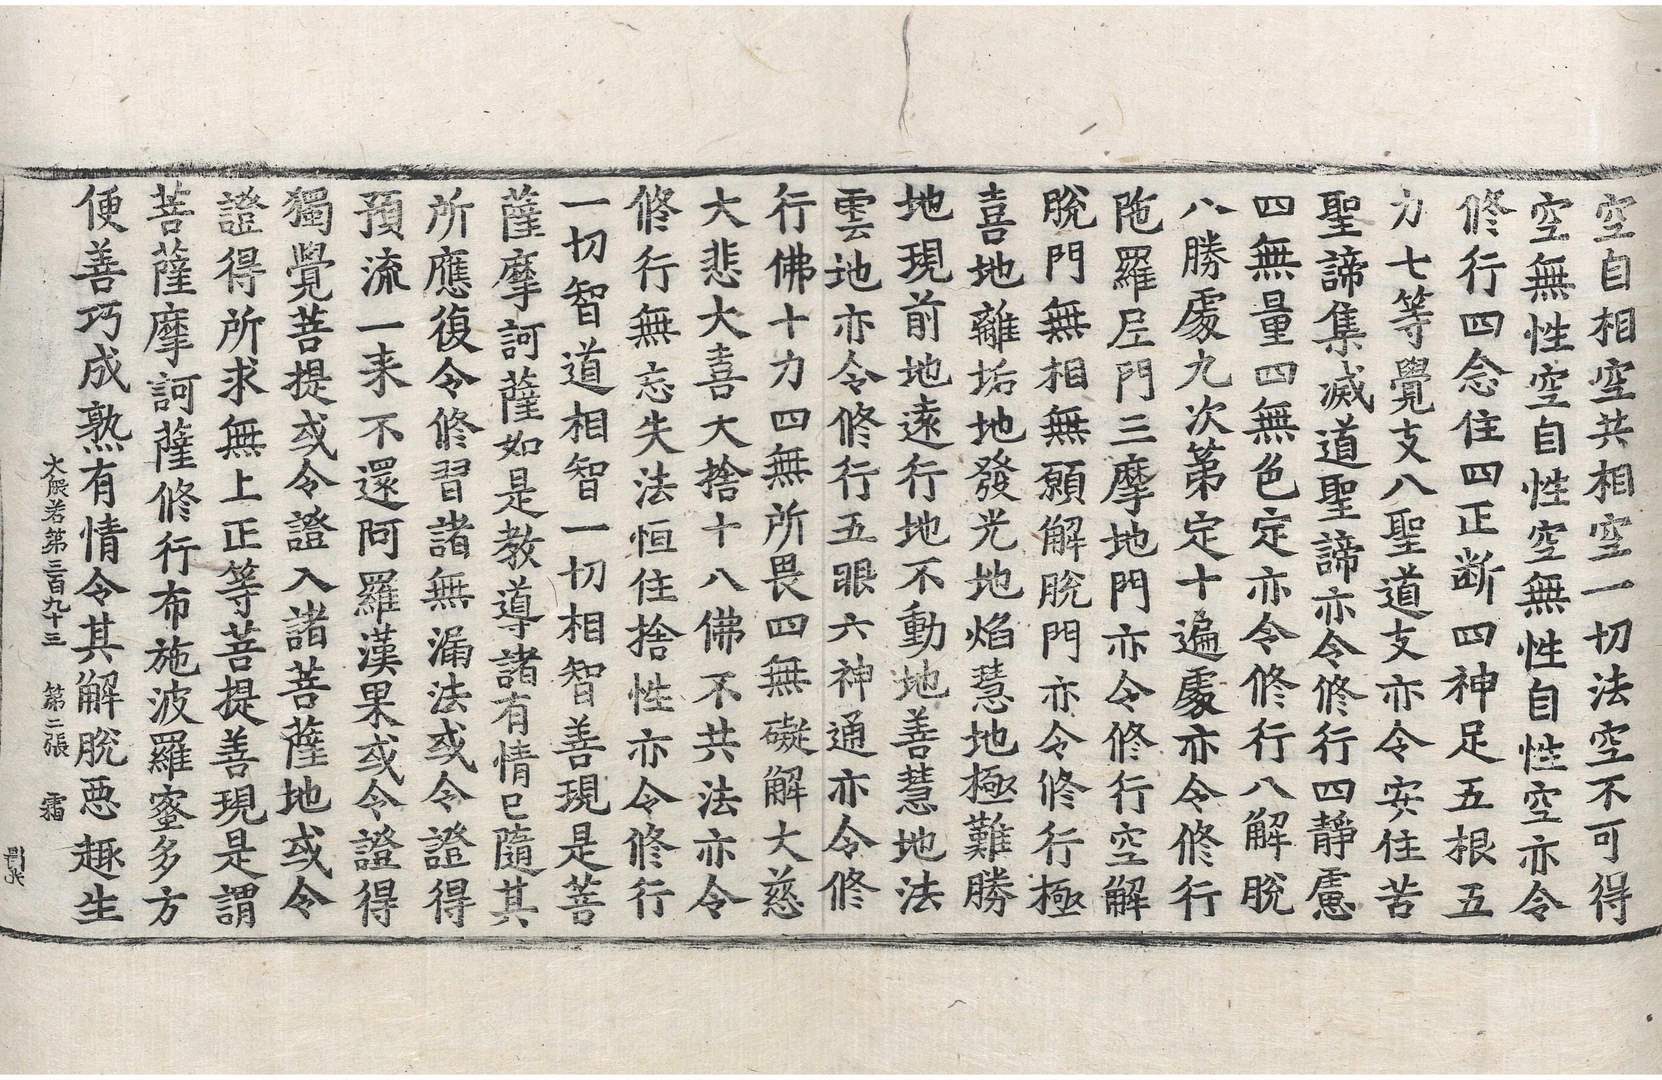 空自相空共相空一切法空不可得
空無性空自性空無性自性空亦令
修行四念住四正断四神足五根五
力七等覺支八聖道支亦令安住苦
聖諦集滅道聖諦亦令修行四靜慮
四無量四無色定亦令修行八解脫
八勝處九次第定十遍處亦令修行
陁羅尼門三摩地門亦令修行空解
脫門無相無願解脫門亦令修行極
喜地離垢地發光地焰慧地極難勝
地現前地遠行地不動地善慧地法
雲地亦令修行五眼六神通亦令修
行佛十力四無所畏四無礙解大慈
大悲大喜大捨十八佛不共法亦令
修行無忘失法恒住捨性亦令修行
一切智道相智一切相智善現是菩
薩摩訶薩如是教導諸有情已隨其
所應復令修習諸無漏法或令證得
預流一来不還阿羅漢果或令證得
獨覺菩提或令證入諸菩薩地或令
證得所求無上正等菩提善現是謂
菩薩摩訶薩修行布施波羅蜜多方
便善巧成熟有情令其解脫惡趣生
大般若第三百九十三 第二張 霜